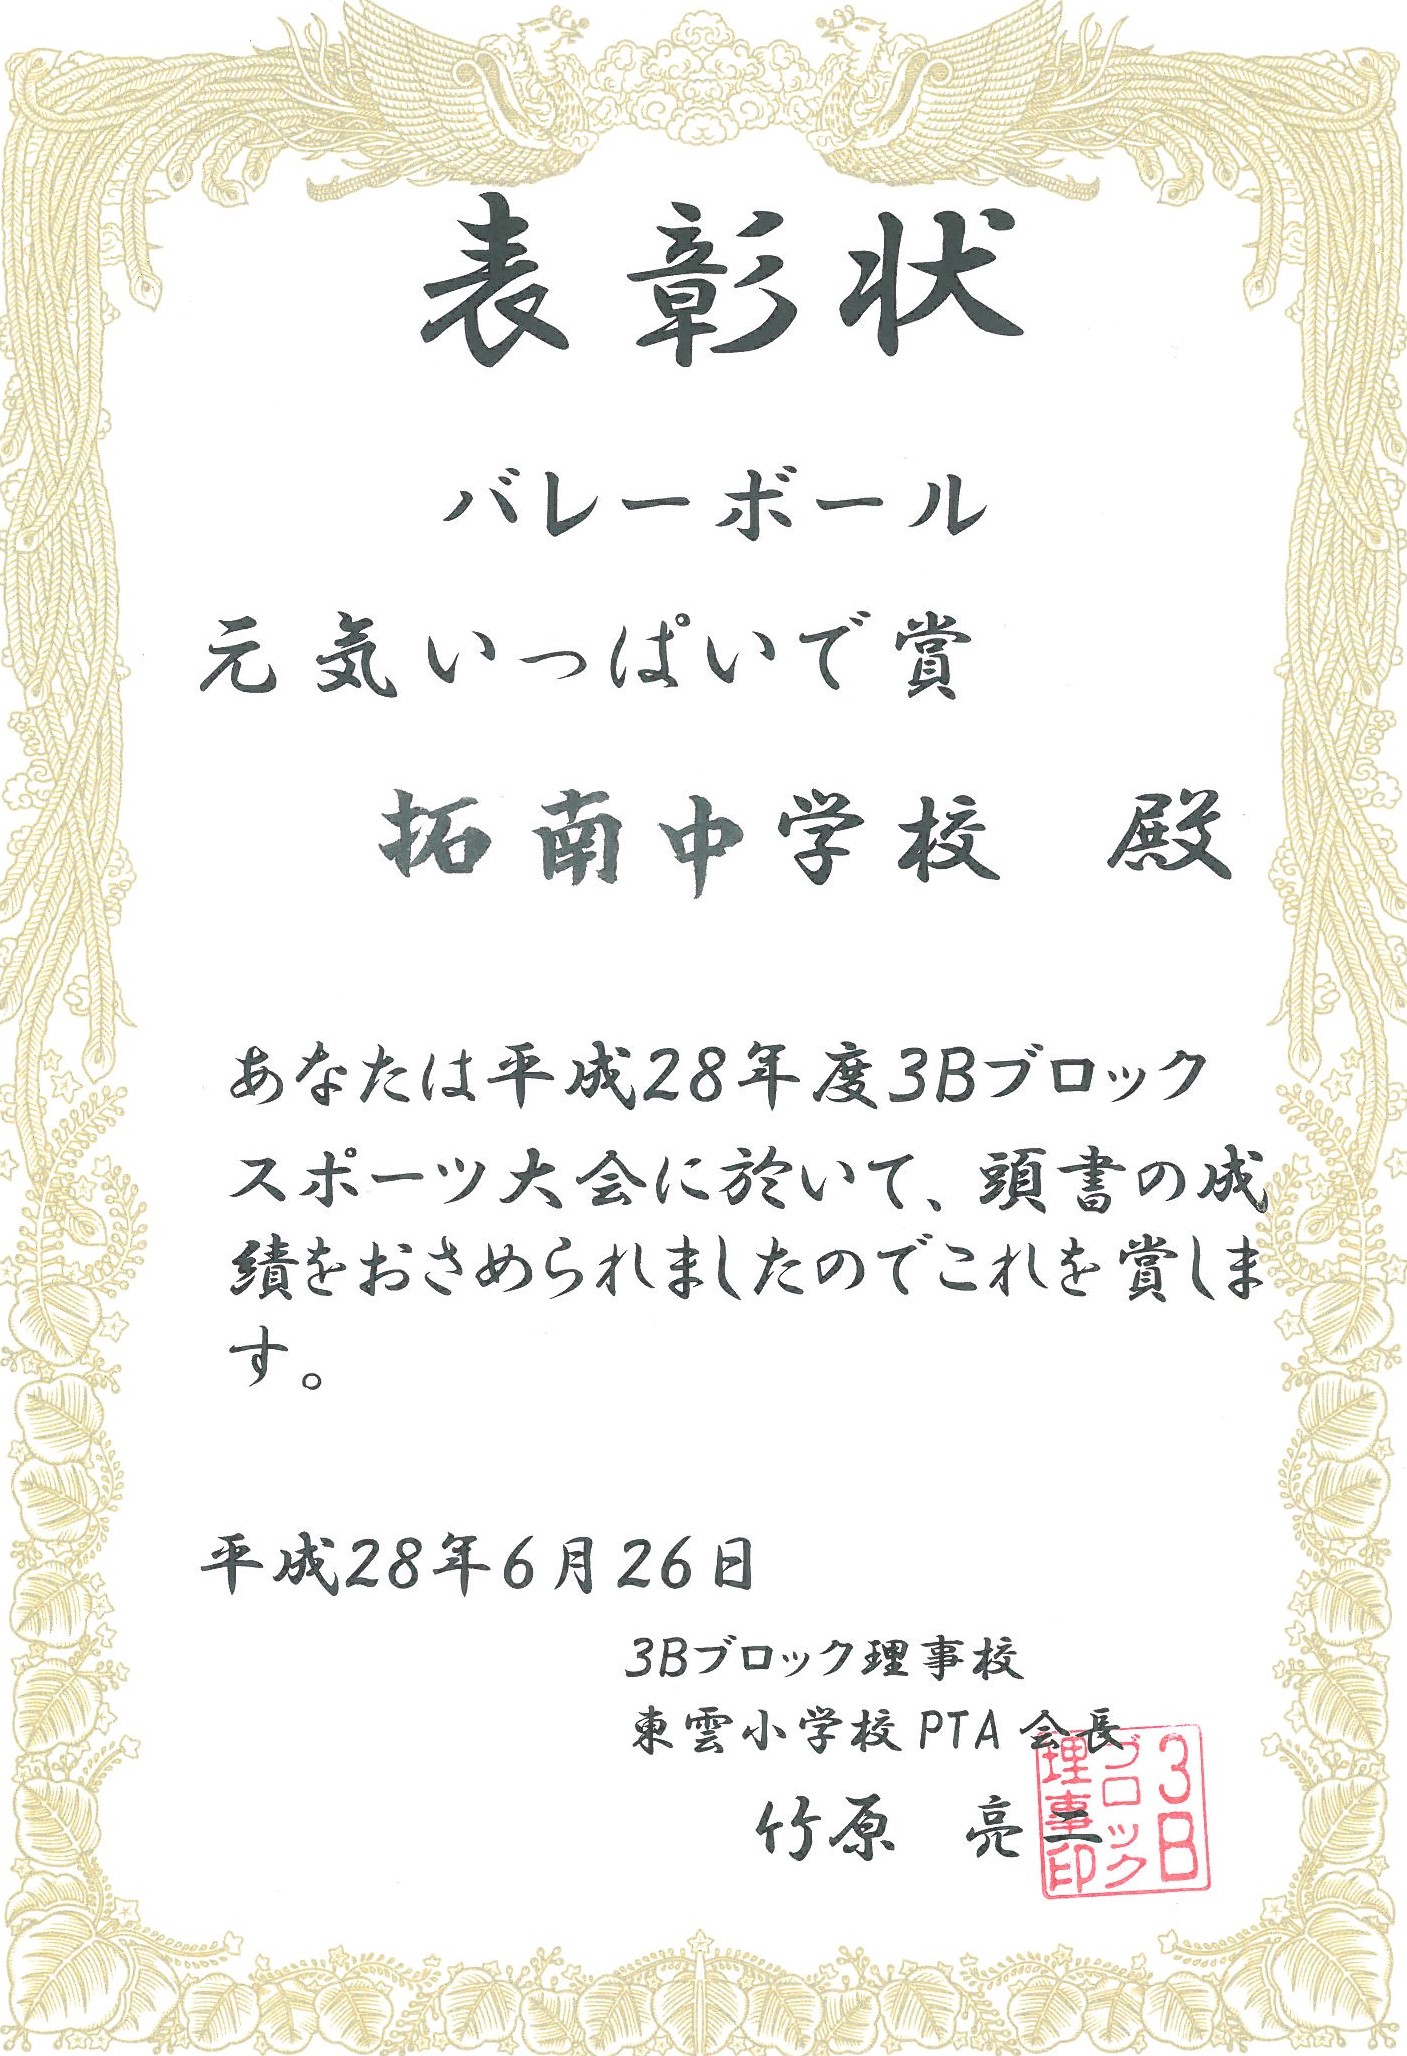 表彰状
バレーボール
元気いっぱいで賞
拓南中学校 殿
あなたは平成28年度3Bブロック
スポーツ大会に於いて、頭書の成
績をおさめられましたのでこれを賞しま
す。
平成28年6月26日
3Bブロック理事校
東雲小学校PTA会長
竹原 亮二
3B
ブロック
理事印